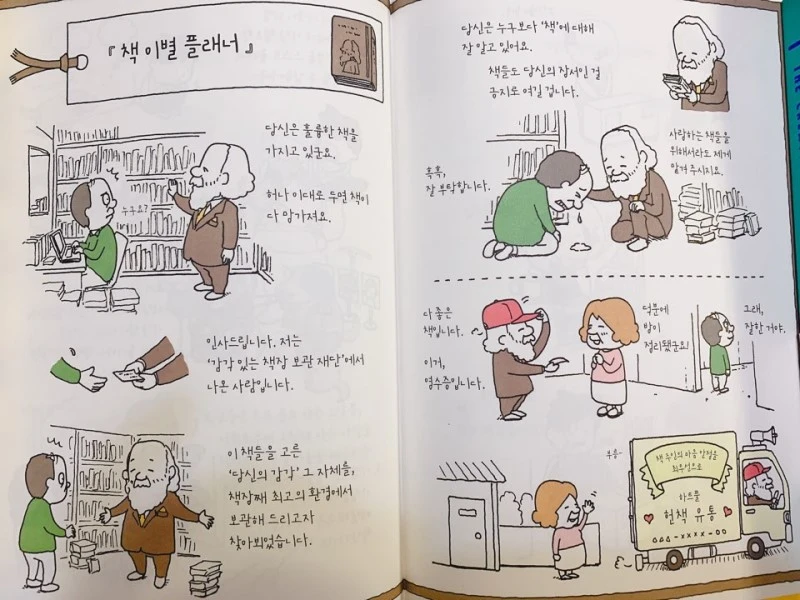 『책 이별 플래너』
당신은 훌륭한 책을
가지고 있군요.
허나 이대로 두면 책이
다 망가져요.
누구요?
인사드립니다. 저는
'감각 있는 책장 보관 재단'에서
나온 사람입니다.
이 책들을 고른
'당신의 감각' 그 자체를,
책장째 최고의 환경에서
보관해 드리고자
찾아뵈었습니다.
당신은 누구보다 '책'에 대해
잘 알고 있어요.
책들도 당신의 장서인 걸
긍지로 여길 겁니다.
사랑하는 책들을
위해서라도 제게
맡겨 주시지요.
흑흑,
잘 부탁합니다.
다 좋은
책입니다.
이거,
영수증입니다.
덕분에
방이
정리됐군요!
그래,
잘한 거야.
부웅-
책 주인의 마음 안정을
최우선으로
하트풀
헌책 유통
○○○-××××-○○